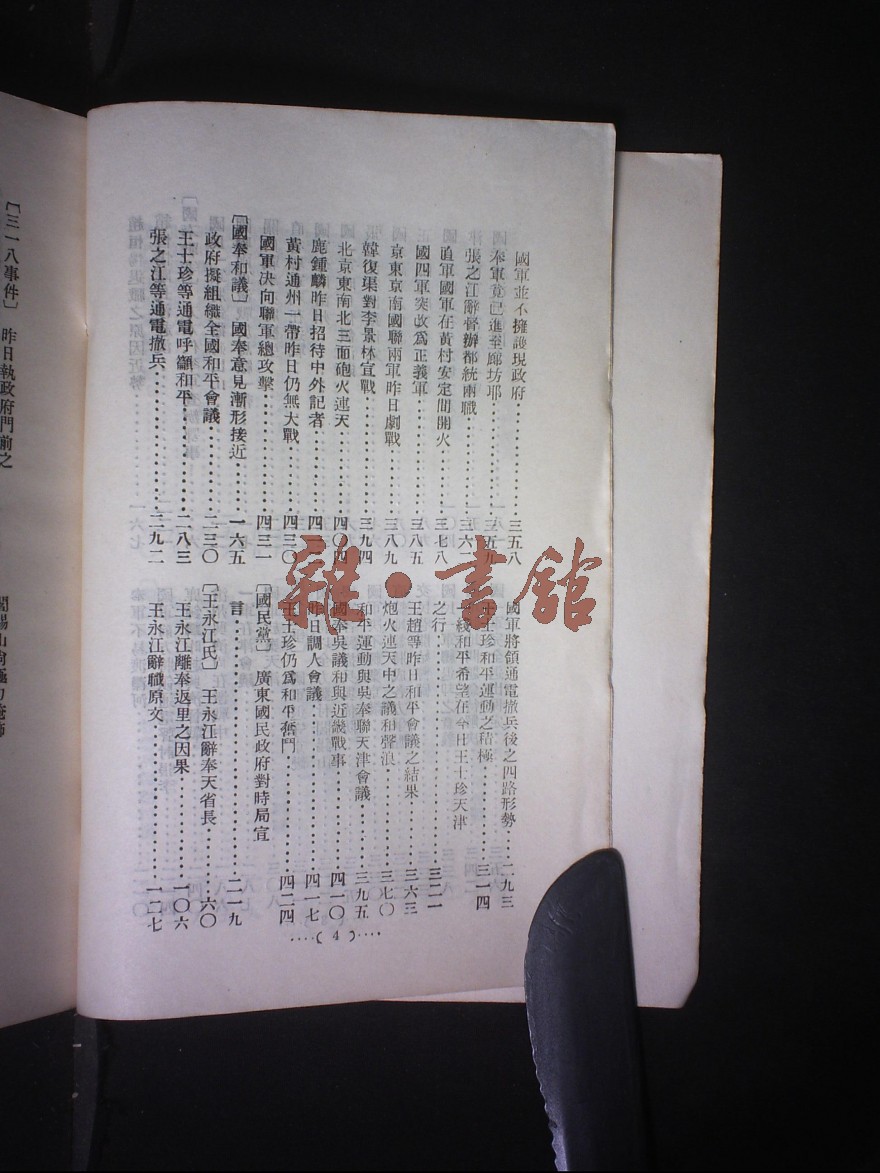 國軍並不擁護現政府............三五八
奉軍竟已進至廊坊耶............三五九
張之江辭督辦都統兩職............三六二
直軍國軍在黃村安定間開火............三七八
國四軍突改爲正義軍............三八五
京東京南國聯兩軍昨日劇戰............三八九
韓復渠對李景林宣戰............三九四
北京東南北三面砲火連天............四〇四
鹿鍾麟昨日招待中外記者
黃村通州一帶昨日仍無大戰............四三〇
國軍决向聯軍總攻擊............四三一
〔國奉和議〕 國奉意見漸形接近............一六五
政府擬組織全國和平會議............二三〇
王士珍等通電呼籲和平............二八三
張之江等通電撤兵............二九二
國軍將領通電撤兵後之四路形勢............二九三
王士珍和平運動之積極............三一四
一綫和平希望在今日王士珍天津
之行............三二一
王趙等昨日和平會議之結果............三六三
炮火連天中之議和聲浪............三七〇
和平運動與吳奉聯天津會議............三九五
國奉吳議和與近畿戰事............四一〇
昨日調人會議............四一七
王士珍仍爲和平奮鬥............四二四
〔國民黨〕 廣東國民政府對時局宣
言............二一九
〔王永江氏〕 王永江辭奉天省長............六〇
王永江離奉返里之因果............一〇六
王永江辭職原文............一二七
....( 4 )....
〔三一八事件〕 昨日執政府門前之
雜·書館